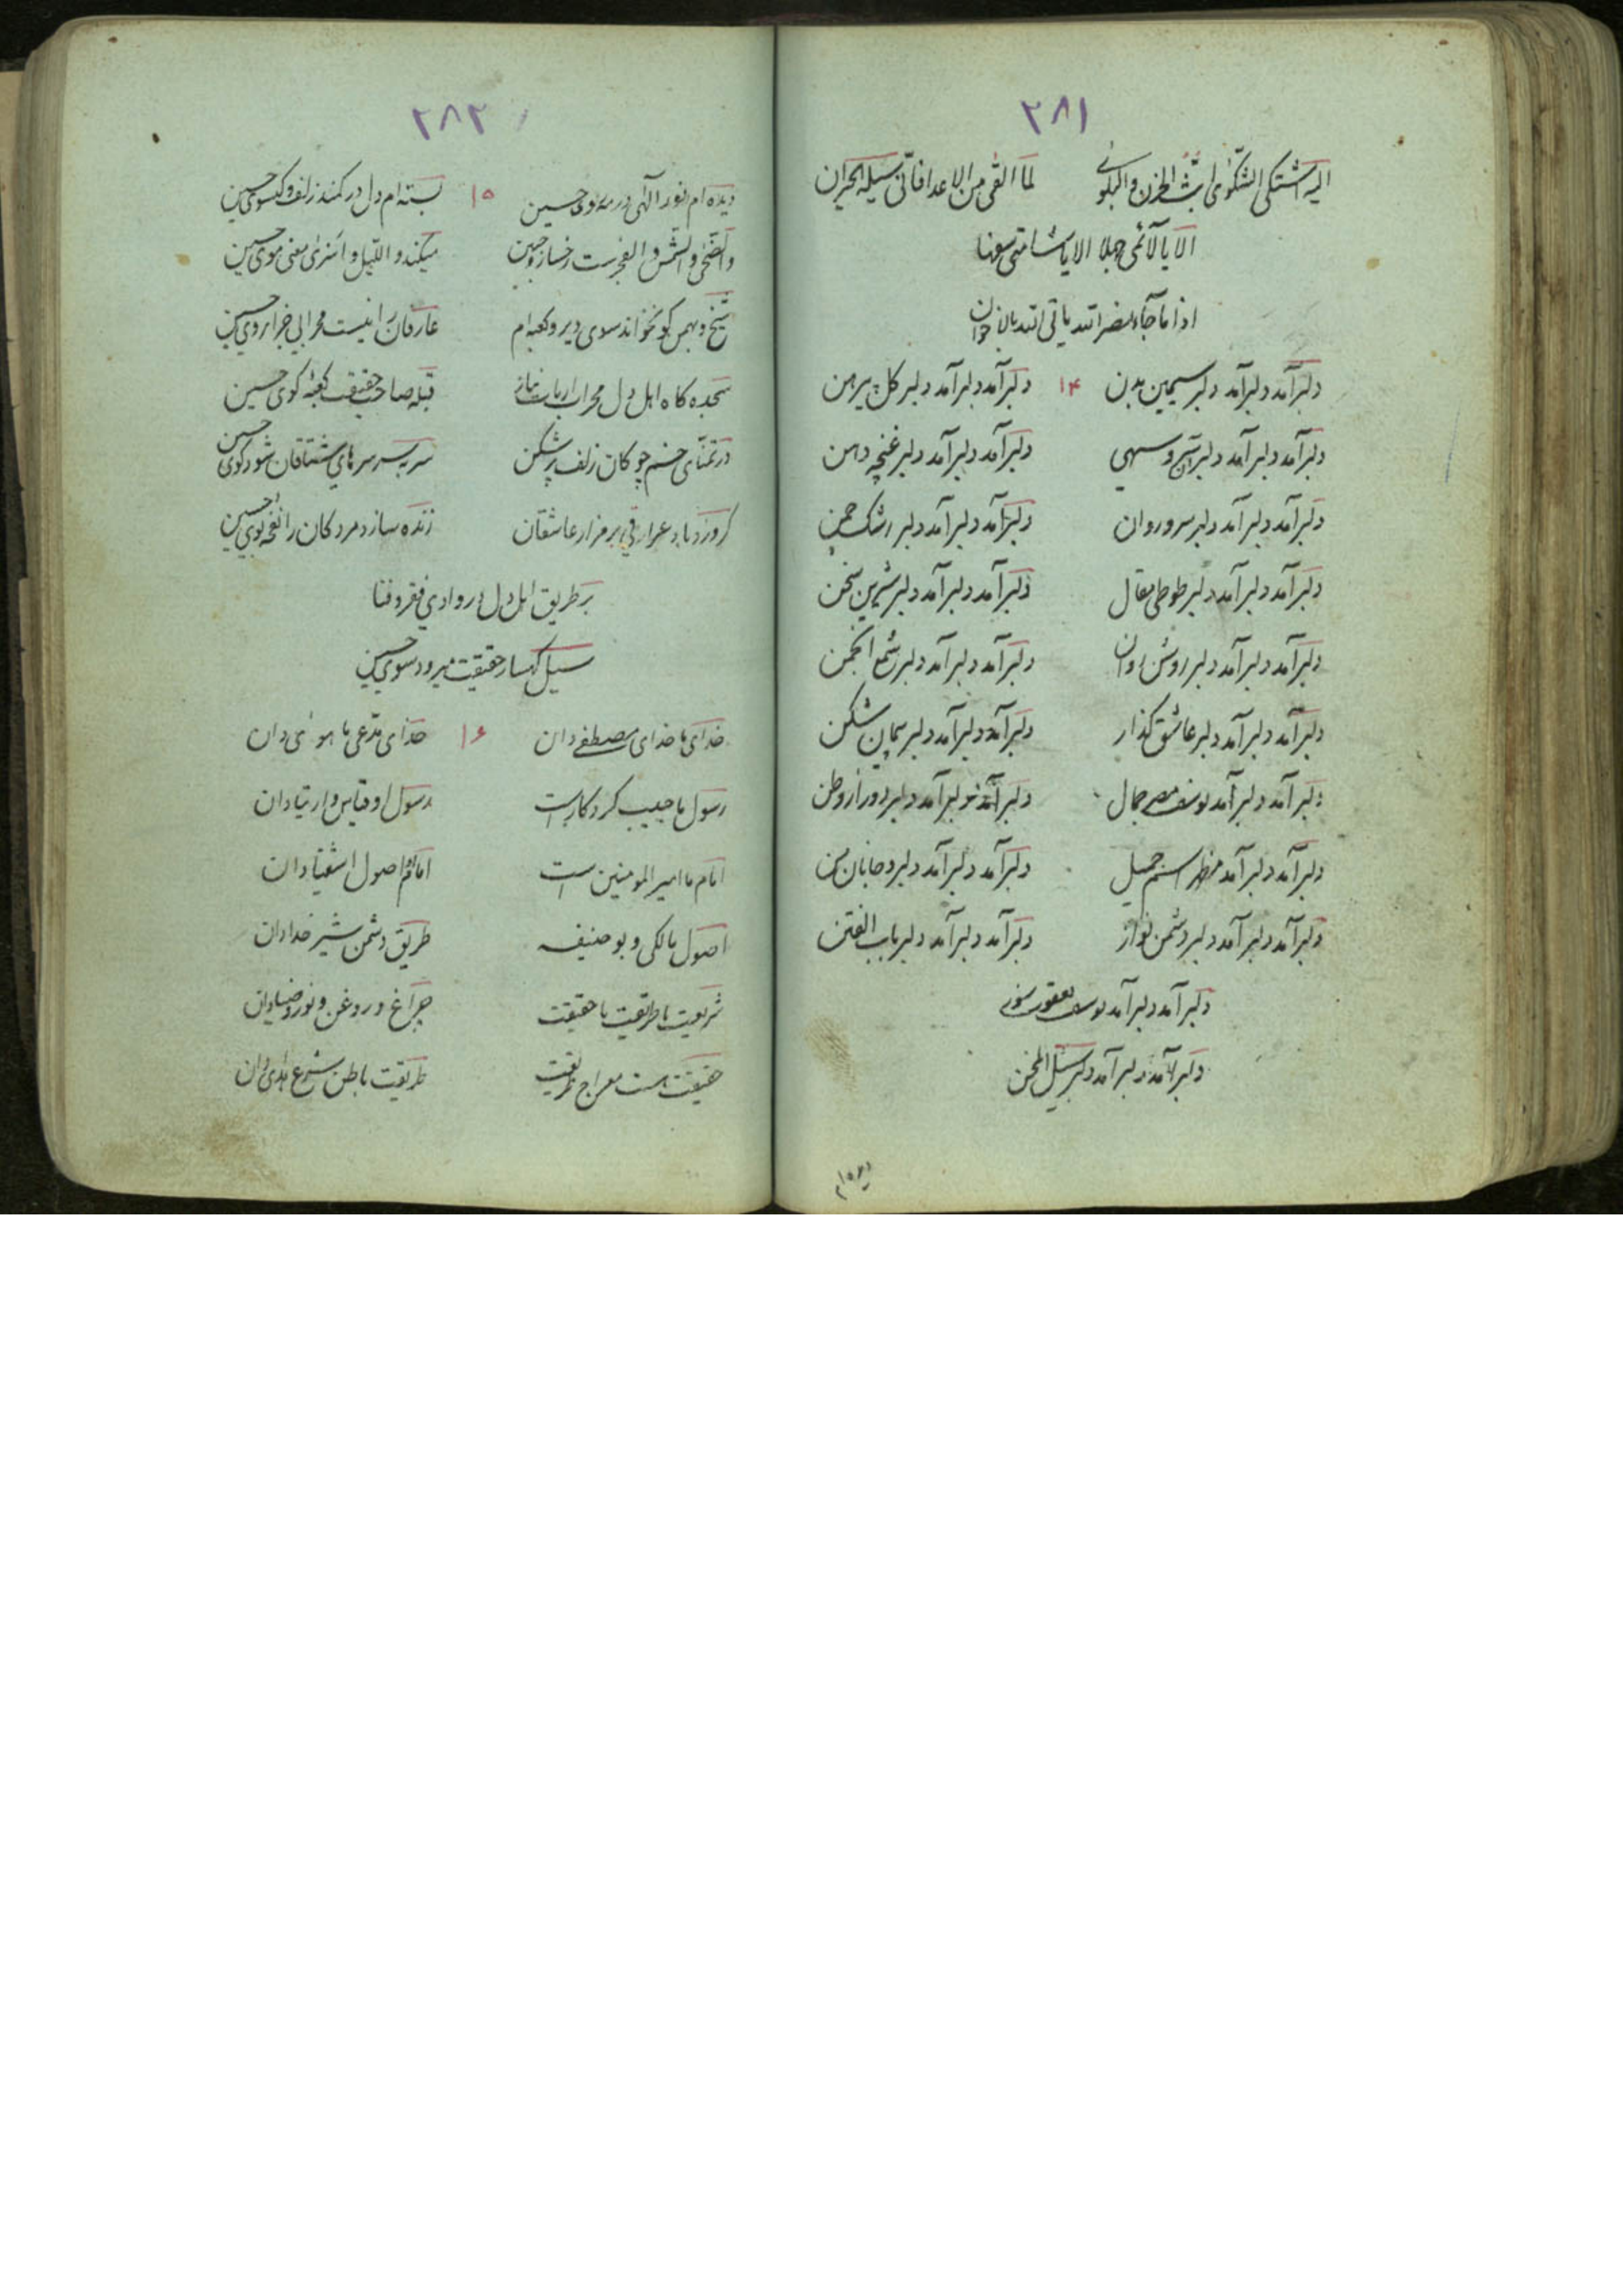 ٢٨١
الیه اشتکی الشکوی ابث الحزن و البلوی لما القی من الاعدا فانی سیله الحیران
الا یا لائمی جهلا الا یا شامتی سفها
اذا ما جاء نصر الله یاتی الله بالاخوان
دلبر آمد دلبر آمد دلبر سیمین بدن ١٤ دلبر آمد دلبر آمد دلبر گل پیرهن
دلبر آمد دلبر آمد دلبر سرو سهی دلبر آمد دلبر آمد دلبر غنچه دهن
دلبر آمد دلبر آمد دلبر سرو روان دلبر آمد دلبر آمد دلبر رشک چمن
دلبر آمد دلبر آمد دلبر طوطی مقال دلبر آمد دلبر آمد دلبر شیرین سخن
دلبر آمد دلبر آمد دلبر روشن روان دلبر آمد دلبر آمد دلبر شمع انجمن
دلبر آمد دلبر آمد دلبر عاشق گذار دلبر آمد دلبر آمد دلبر پیمان شکن
دلبر آمد دلبر آمد یوسف مصر جمال دلبر آمد دلبر آمد دلبر دور از وطن
دلبر آمد دلبر آمد مظهر اسم جمیل دلبر آمد دلبر آمد دلبر و جانان من
دلبر آمد دلبر آمد دلبر دشمن نواز دلبر آمد دلبر آمد دلبر باب الفتن
دلبر آمد دلبر آمد یوسف یعقوب
دلبر آمد دلبر آمد دلبر
دیده ام
٢٨٢
دیده ام نور آلهی در مه روی حسین ١٥ بسته ام دل در کمند زلف و گیسوی حسین
والضحی والشمس والفجرست رخسار و جبین میکند واللیل و اسری معنی موی حسین
شیخ و برهمن گو نخواند سوی دیر و کعبه ام عارفان را نیست محرابی جز ابروی حسین
سجده کاه اهل دل محراب ارباب نیاز قبله صاحب حقیقت کعبه کوی حسین
در تمنای خم چوکان زلف پر شکن سر بسر سرهای مشتاقان شود گوی حسین
گر وزد باد عراقی بر مزار عاشقان زنده سازد مردکان را نفحه بوی حسین
بر طریق اهل دل در وادی فقر و فنا
سیل کهسار حقیقت میرود سوی حسین
خدای ما خدای مصطفی دان ١٦ خدای مدعی ما هوئی دان
رسول ما حبیب کردکار است رسول او قیاس و ارتیا دان
امام ما امیر المومنین است امامم اصول اشقیا دان
اصول مالکی و بو حنیفه طریق دشمن شیر خدا دان
شریعت با طریقت با حقیقت چراغ و روغن و نور و ضیا دان
حقیقت هست معراج طریقت طریقت باطن شرع هدی دان